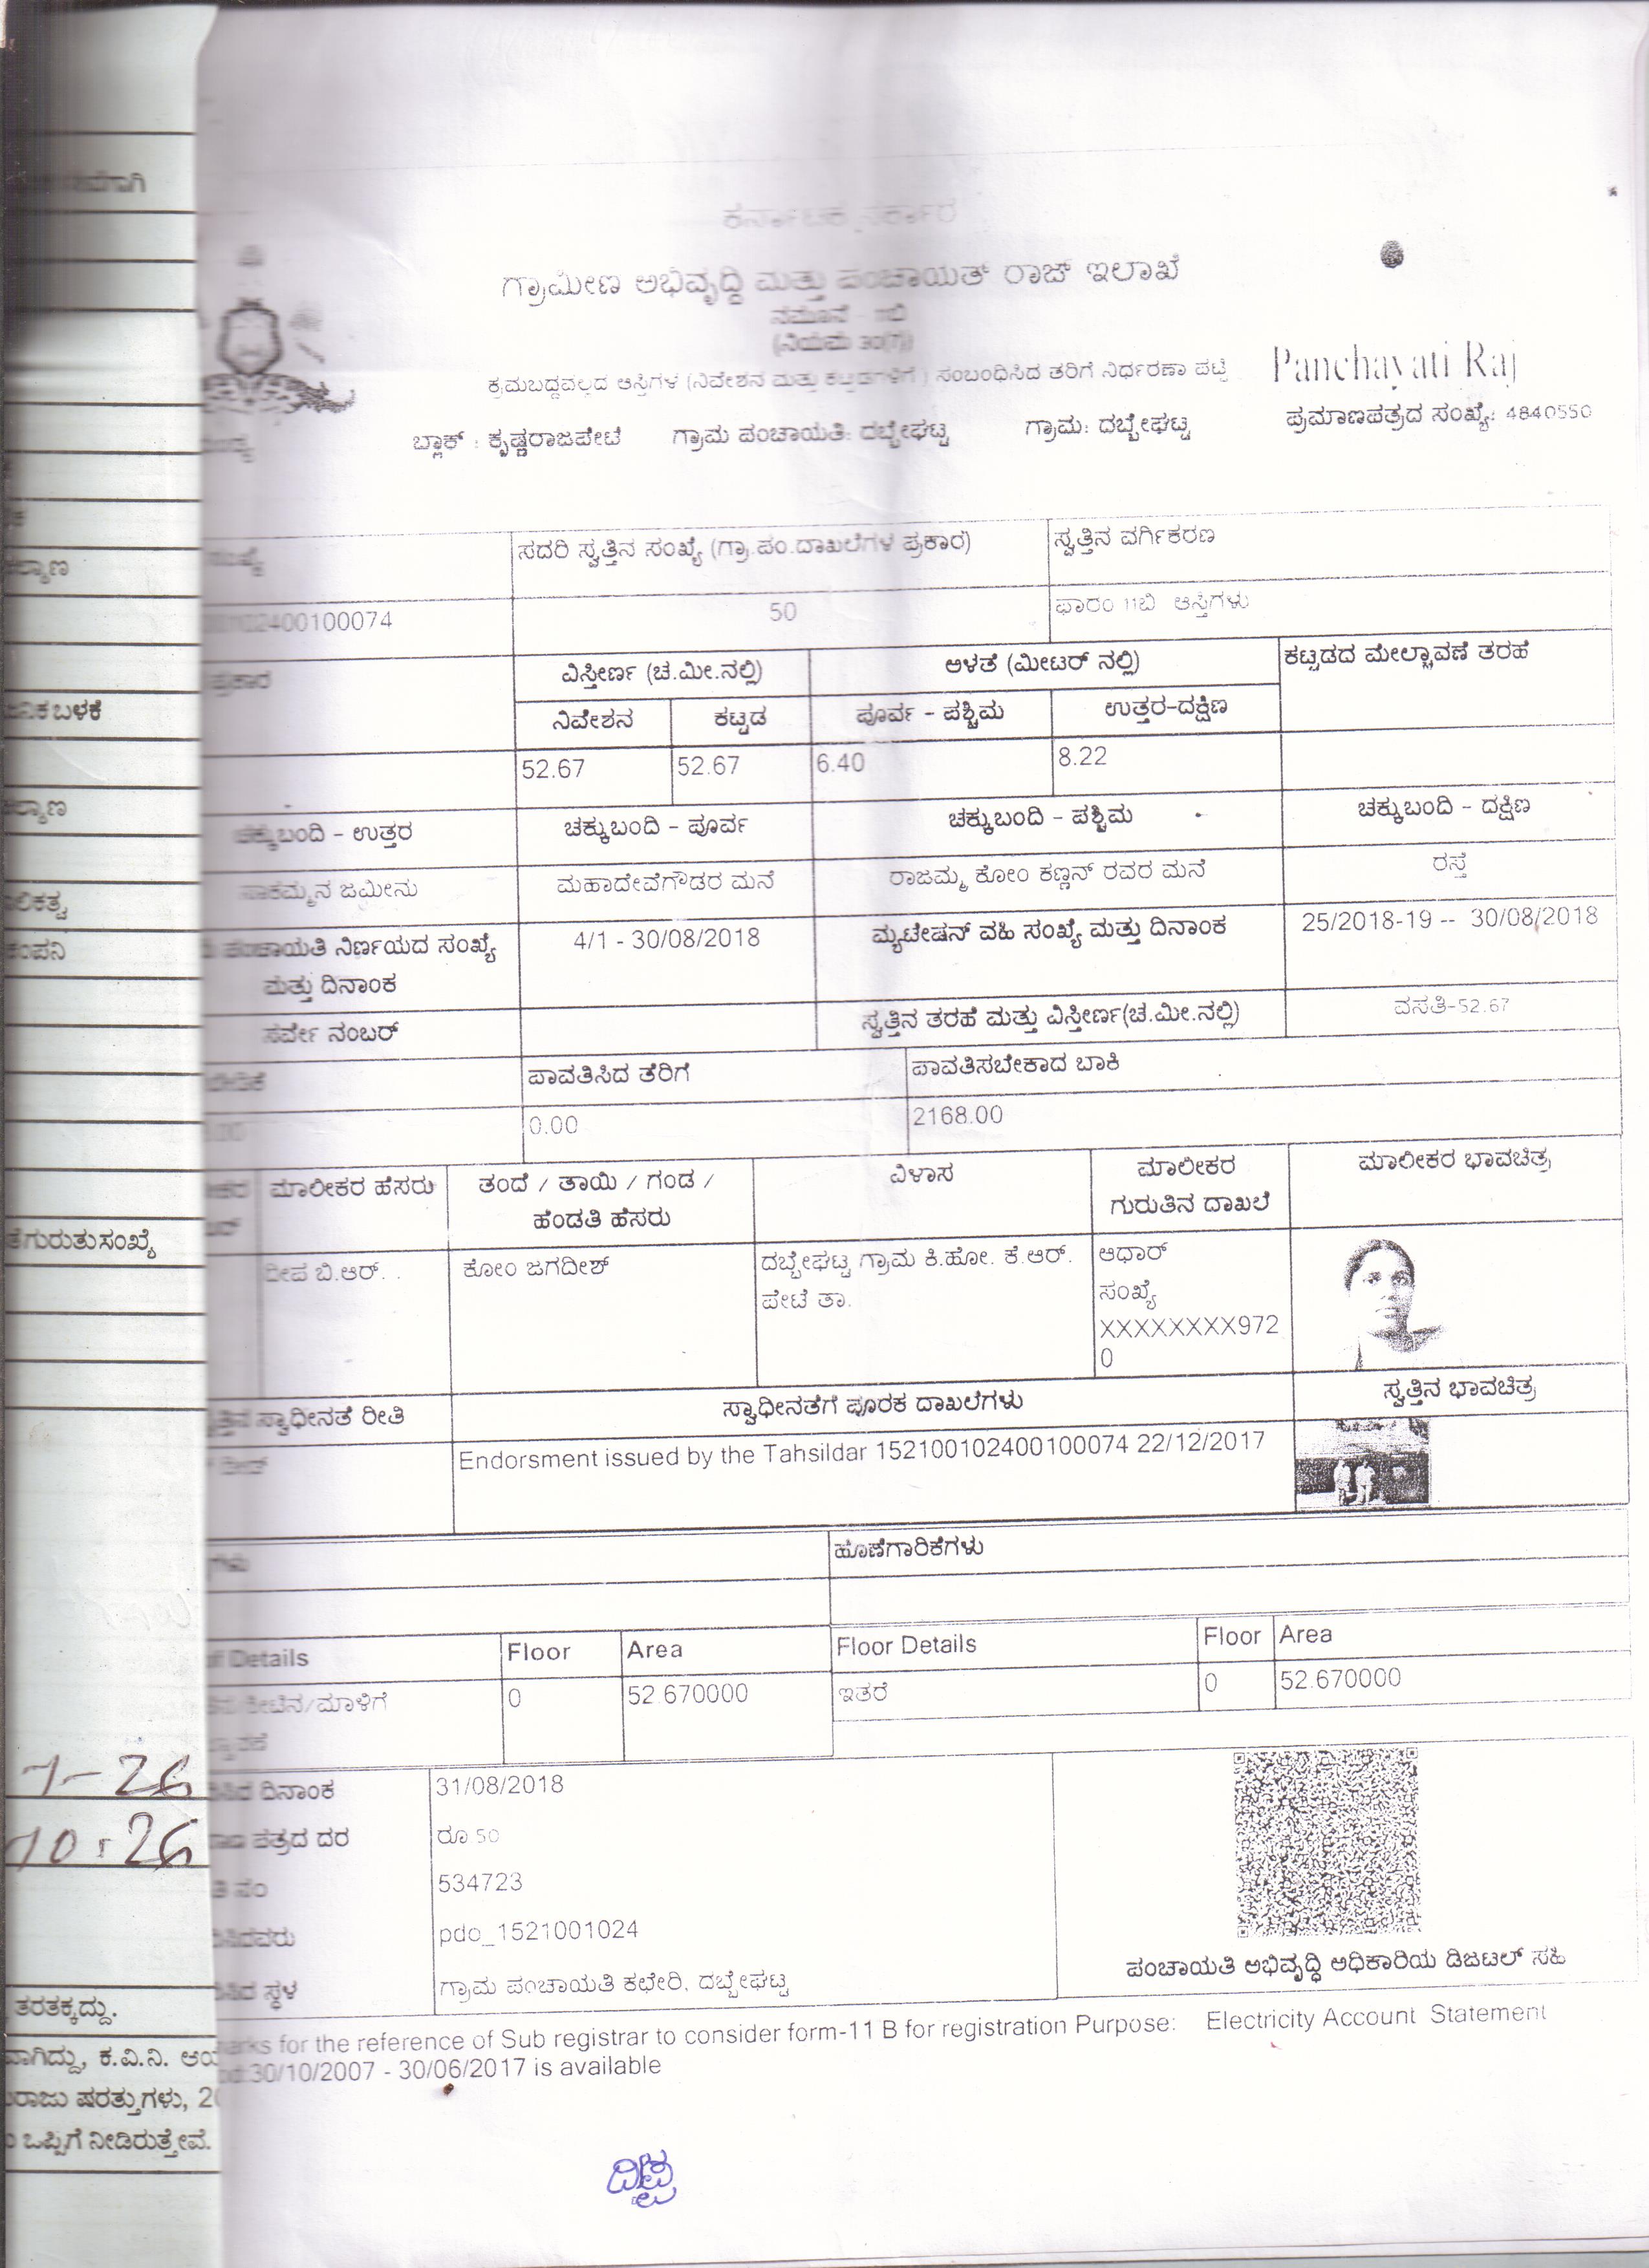 ಕರ್ನಾಟಕ ಸರ್ಕಾರ
ಗ್ರಾಮೀಣ ಅಭಿವೃದ್ಧಿ ಮತ್ತು ಪಂಚಾಯತ್ ರಾಜ್ ಇಲಾಖೆ
ನಮೂನೆ - 11ಬಿ
(ನಿಯಮ 30(7))
ಕ್ರಮಬದ್ಧವಲ್ಲದ ಆಸ್ತಿಗಳ (ನಿವೇಶನ ಮತ್ತು ಕಟ್ಟಡಗಳಿಗೆ) ಸಂಬಂಧಿಸಿದ ತರಿಗೆ ನಿರ್ಧರಣಾ ಪಟ್ಟಿ
Panchayati Raj
ಬ್ಲಾಕ್ : ಕೃಷ್ಣರಾಜಪೇಟೆ ಗ್ರಾಮ ಪಂಚಾಯತಿ: ದಬ್ಬೇಘಟ್ಟ ಗ್ರಾಮ: ದಬ್ಬೇಘಟ್ಟ ಪ್ರಮಾಣಪತ್ರದ ಸಂಖ್ಯೆ: 4840550
ಸದರಿ ಸ್ವತ್ತಿನ ಸಂಖ್ಯೆ (ಗ್ರಾ.ಪಂ.ದಾಖಲೆಗಳ ಪ್ರಕಾರ) ಸ್ವತ್ತಿನ ವರ್ಗಿಕರಣ
02400100074 50 ಫಾರಂ 11ಬಿ ಆಸ್ತಿಗಳು
ಪ್ರಕಾರ ವಿಸ್ತೀರ್ಣ (ಚ.ಮೀ.ನಲ್ಲಿ) ಅಳತೆ (ಮೀಟರ್ ನಲ್ಲಿ) ಕಟ್ಟಡದ ಮೇಲ್ಚಾವಣೆ ತರಹೆ
ನಿವೇಶನ ಕಟ್ಟಡ ಪೂರ್ವ - ಪಶ್ಚಿಮ ಉತ್ತರ-ದಕ್ಷಿಣ
52.67 52.67 6.40 8.22
ಚಕ್ಕುಬಂದಿ - ಉತ್ತರ ಚಕ್ಕುಬಂದಿ - ಪೂರ್ವ ಚಕ್ಕುಬಂದಿ - ಪಶ್ಚಿಮ ಚಕ್ಕುಬಂದಿ - ದಕ್ಷಿಣ
ಸಾಕಮ್ಮನ ಜಮೀನು ಮಹಾದೇವೆಗೌಡರ ಮನೆ ರಾಜಮ್ಮ ಕೋಂ ಕಣ್ಣನ್ ರವರ ಮನೆ ರಸ್ತೆ
ಪಂಚಾಯತಿ ನಿರ್ಣಯದ ಸಂಖ್ಯೆ 4/1 - 30/08/2018 ಮ್ಯುಟೇಷನ್ ವಹಿ ಸಂಖ್ಯೆ ಮತ್ತು ದಿನಾಂಕ 25/2018-19 -- 30/08/2018
ಮತ್ತು ದಿನಾಂಕ
ಸರ್ವೇ ನಂಬರ್ ಸ್ವತ್ತಿನ ತರಹೆ ಮತ್ತು ವಿಸ್ತೀರ್ಣ(ಚ.ಮೀ.ನಲ್ಲಿ) ವಸತಿ-52.67
ಪಾವತಿಸಿದ ತೆರಿಗೆ ಪಾವತಿಸಬೇಕಾದ ಬಾಕಿ
0.00 2168.00
ಮಾಲೀಕರ ಹೆಸರು ತಂದೆ / ತಾಯಿ / ಗಂಡ / ವಿಳಾಸ ಮಾಲೀಕರ ಮಾಲೀಕರ ಭಾವಚಿತ್ರ
ಹೆಂಡತಿ ಹೆಸರು ಗುರುತಿನ ದಾಖಲೆ
ದೀಪ ಬಿ.ಆರ್. . ಕೋಂ ಜಗದೀಶ್ ದಬ್ಬೇಘಟ್ಟ ಗ್ರಾಮ ಕಿ.ಹೋ. ಕೆ.ಆರ್. ಆಧಾರ್
ಪೇಟೆ ತಾ. ಸಂಖ್ಯೆ
XXXXXXXX972
0
ಸ್ವಾಧೀನತೆ ರೀತಿ ಸ್ವಾಧೀನತೆಗೆ ಪೂರಕ ದಾಖಲೆಗಳು ಸ್ವತ್ತಿನ ಭಾವಚಿತ್ರ
Endorsment issued by the Tahsildar 152100102400100074 22/12/2017
ಗಳು ಹೊಣೆಗಾರಿಕೆಗಳು
Details Floor Area Floor Details Floor Area
0 52.670000 ಇತರೆ 0 52.670000
ದಿನಾಂಕ 31/08/2018
ಪತ್ರದ ದರ ರೂ 50
ನಂ 534723
pdo_1521001024
ಸ್ಥಳ ಗ್ರಾಮ ಪಂಚಾಯತಿ ಕಛೇರಿ, ದಬ್ಬೇಘಟ್ಟ
ಪಂಚಾಯತಿ ಅಭಿವೃದ್ಧಿ ಅಧಿಕಾರಿಯ ಡಿಜಟಲ್ ಸಹಿ
arks for the reference of Sub registrar to consider form-11 B for registration Purpose: Electricity Account Statement
30/10/2007 - 30/06/2017 is available
ಬಳಕೆ
ಗುರುತು ಸಂಖ್ಯೆ
1-26
10.26
ತರತಕ್ಕದ್ದು.
ವಾಗಿದ್ದು, ಕ.ವಿ.ನಿ. ಆಯ
ರಾಜು ಷರತ್ತುಗಳು, 20
ಒಪ್ಪಿಗೆ ನೀಡಿರುತ್ತೇವೆ.